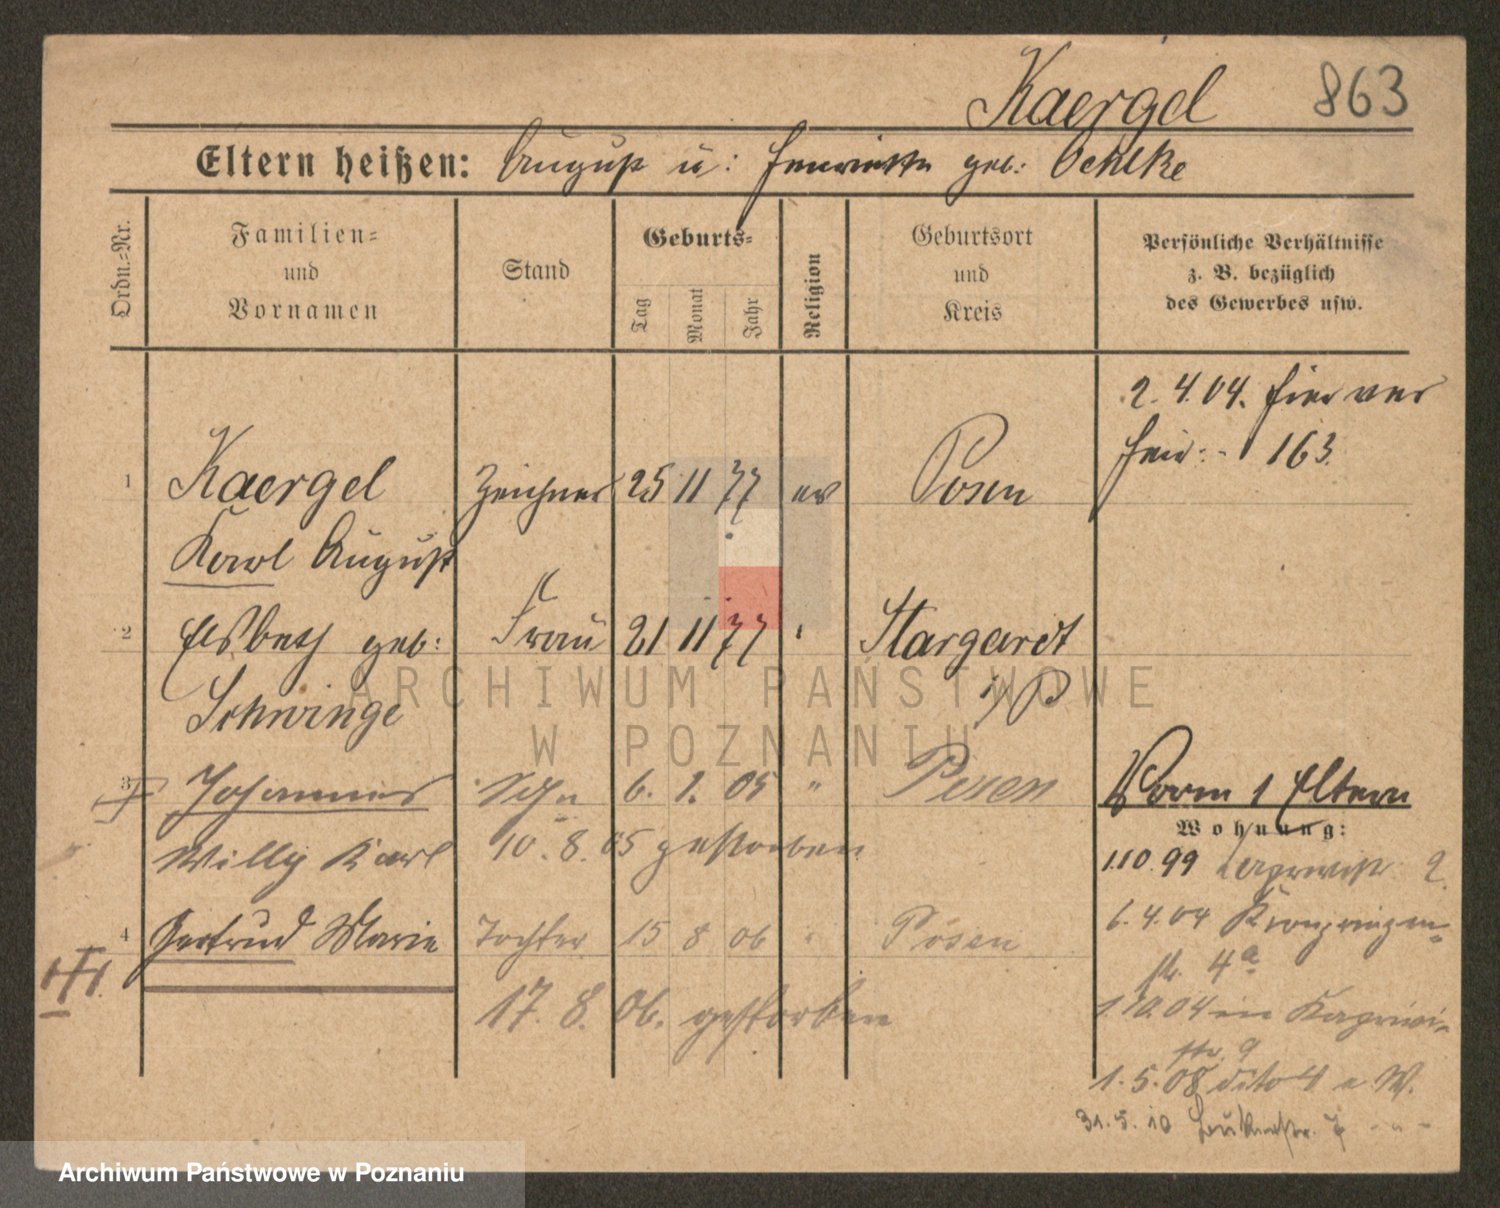 Kaergel 863
Eltern heißen: August u: Henriette geb: Oehlke
Ordn.-Nr.
Familien-
und
Vornamen
Stand
Geburts-
Tag
Monat
Jahr
Religion
Geburtsort
und
Kreis
Persönliche Verhältnisse
z. B. bezüglich
des Gewerbes usw.
2.4.04. hier ver
heir: - 163.
1 Kaergel Zeichner 25 11 77 ev Posen
Karl August
2 Elsbeth geb: Frau 21 11 77 " Stargardt
Schwinge i/P
3 Johannes Sohn 6. 1. 05 " Posen
Willy Karl 10. 8. 05 gestorben
4 Gertrud Marie Tochter 15 8 06 " Posen
17. 8. 06. gestorben
Vorm 1 Eltern
Wohnung:
1.10.99 2.
6.4.04 Kronprinzen-
str. 4a
1.10.04 in Kaprivi-
str. 9
1.5.08 dito 4 e W.
31.5.10
ARCHIWUM PAŃSTWOWE
W POZNANIU
Archiwum Państwowe w Poznaniu